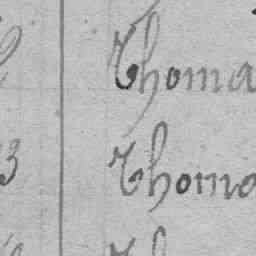 Thoma
3 Thoma